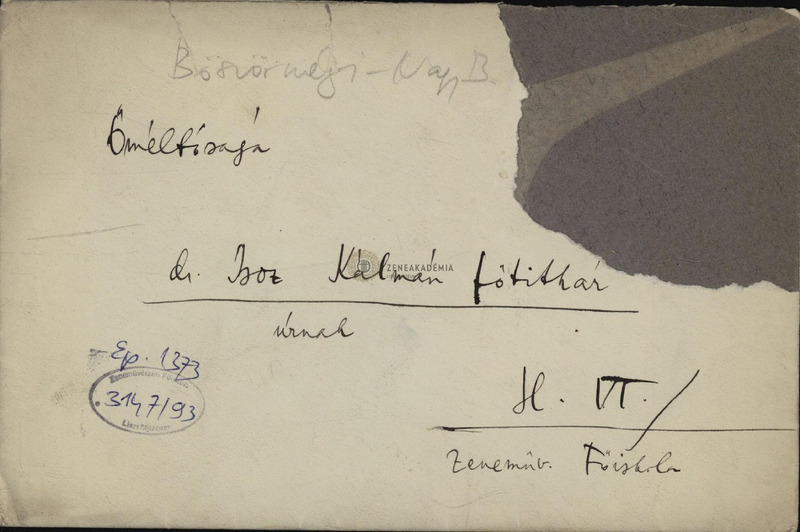 Böszörményi-Nagy B.
Őméltósága
dr. Isoz Kálmán főtitkár
ZENEAKADÉMIA
úrnak
Ep. 1373
3147/93
Liszt Múzeum
H. VI./
Zeneműv. Főiskola